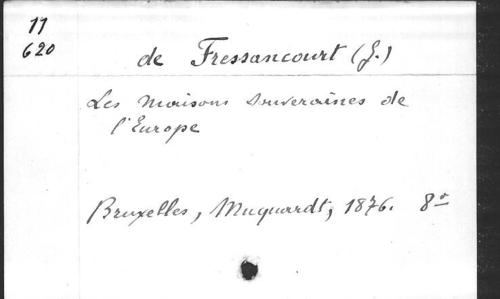 11
620
de Fressancourt (J.)
Les Maisons Souveraines de
l'Europe
Bruxelles, Muquardt, 1876. 8º